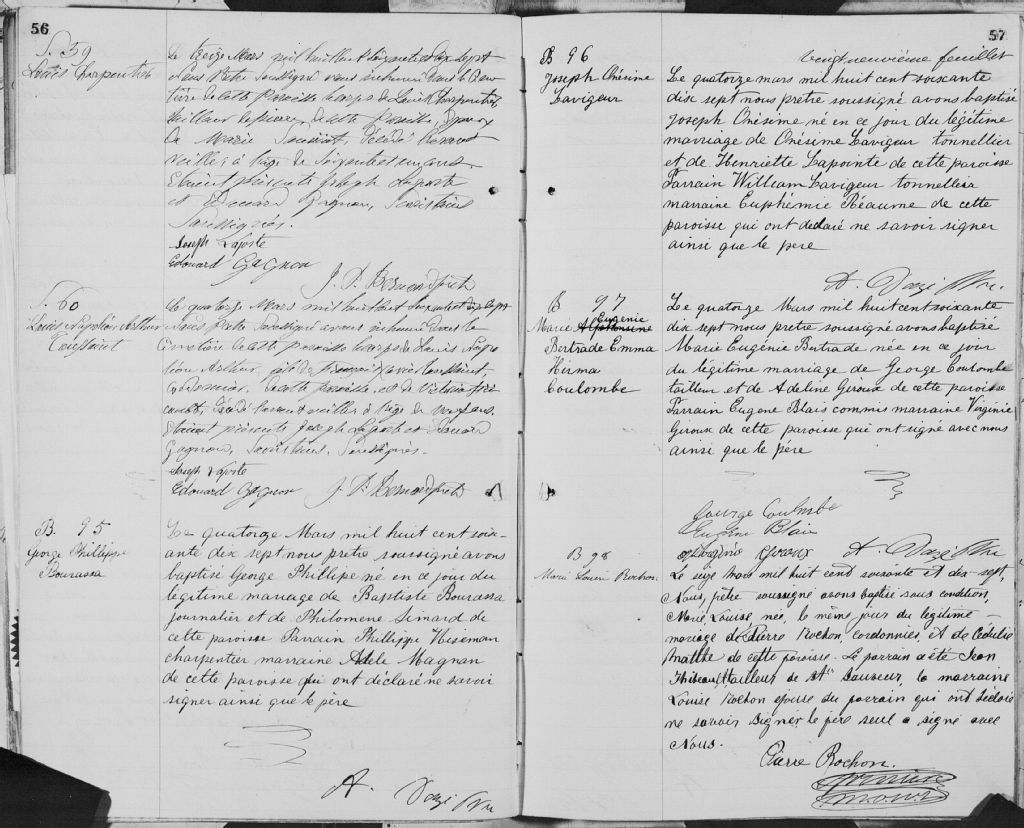 56
S. 59
Louis Charpentier
Le treize Mars mil huit cent soixante et dix sept
Nous Prêtre Soussigné avons inhumé dans le Cime-
tière de cette paroisse le corps de Louis Charpentier
tailleur de pierre, de cette paroisse, époux
de Marie Toussaint, décédé l'avant
veille, à l'âge de
Etaient présents Joseph Laporte
et Edouard Gagnon, Sacristains
Soussignés.
Joseph Laporte
Edouard Gagnon
J. P. Bernard ptre
S. 60
Louis Napoléon Arthur
Toussaint
Le quatorze Mars mil huit cent soixante et dix sept
Nous Prêtre Soussigné avons inhumé dans le
cimetière de cette paroisse le corps de Louis Napo-
léon Arthur, fils de François Xavier Toussaint,
cordonnier, de cette paroisse, et de
décédé l'avant veille à l'âge de
Etaient présents Joseph Laporte et Edouard
Gagnon, Sacristains, Soussignés.
Joseph Laporte
Edouard Gagnon J. P. Bernard ptre
B. 95
George Phillippe
Bourassa
Le quatorze Mars mil huit cent soix-
ante dix sept nous pretre soussigné avons
baptisé George Phillipe né en ce jour du
légitime mariage de Baptiste Bourassa
journalier et de Philomene Simard de
cette paroisse Parrain Phillippe Heseman
charpentier marraine Adele Magnan
de cette paroisse qui ont déclaré ne savoir
signer ainsi que le père
A. Ptre
57
vingt neuvième feuillet
B 96
Joseph Onésime
Lavigeur
Le quatorze mars mil huit cent soixante
dix sept nous pretre soussigné avons baptisé
Joseph Onésime né en ce jour du légitime
mariage de Onésime Lavigeur tonnellier
et de Henriette Lapointe de cette paroisse
Parrain William Lavigeur tonnellier
marraine Euphémie Réaume de cette
paroisse qui ont declaré ne savoir signer
ainsi que le pere
A. Ptre.
B 97
Eugénie
Marie
Bertrade Emma
Hirma
Coulombe
Le quatorze Mars mil huit cent soixante
dix sept nous pretre soussigné avons baptisé
Marie Eugénie Bertrade née en ce jour
du légitime mariage de George Coulombe
tailleur et de Adeline Giroux de cette paroisse
Parrain Eugene Blais commis marraine Virginie
Giroux de cette paroisse qui ont signé avec nous
ainsi que le père
George Coulombe
Eugène Blais
Giroux A. Ptre
B 98
Marie Louise Rochon.
Le seize Mars mil huit cent soixante et dix-sept,
Nous, prêtre soussigné avons baptisé sous condition,
Marie, Louise, née, le même jour du légitime
mariage de Pierre Rochon, cordonnier, et de Cédulie
Matthe de cette paroisse. Le parrain a été Jean
Thibeau, tailleur de St. Sauveur, la marraine
Louise Rochon épouse du parrain qui ont déclaré
ne savoir signer, le père seul a signé avec
Nous.
Pierre Rochon.